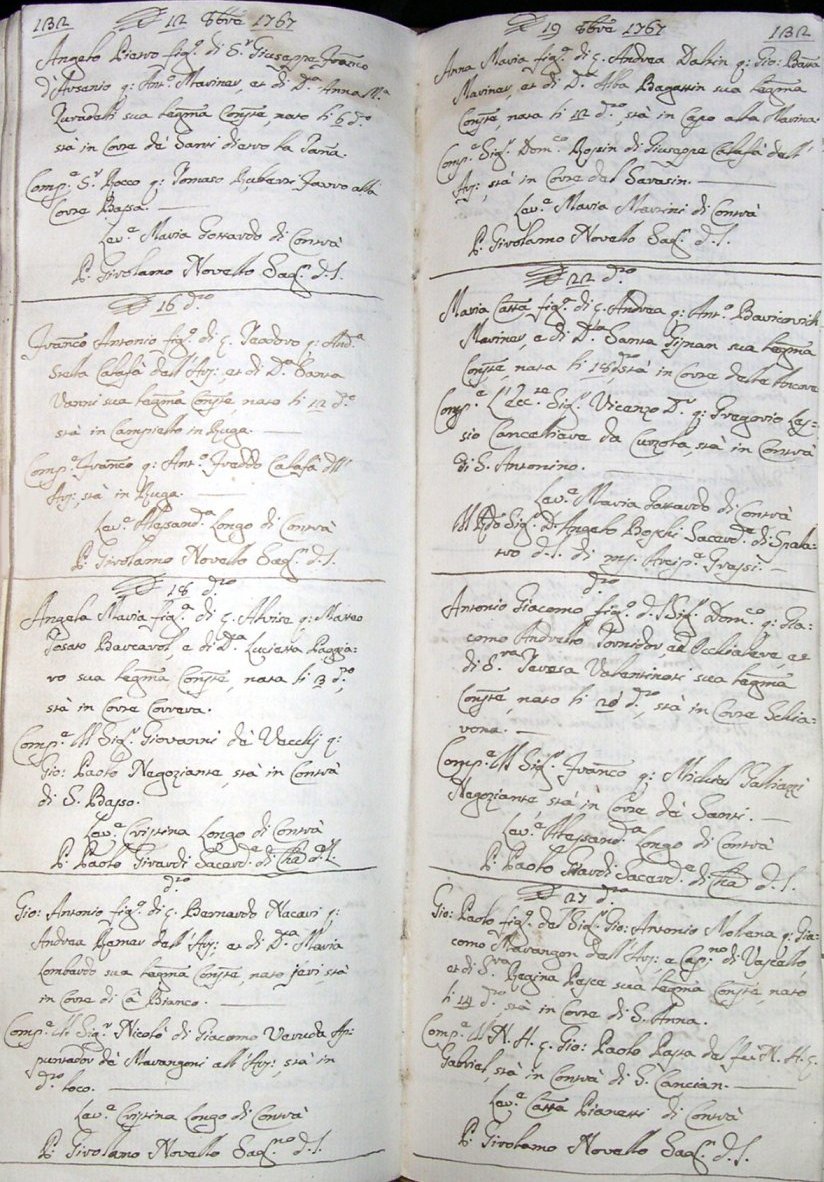 132
12 8bre 1767
Angelo Pietro figo. di Sr. Giuseppe Franco
d'Arsenio q: Anto. Mariner, et di Da. Anna Ma.
sua legma Conste, nato li 6 do.
stà in Corte de Santi dietro la
Compe. Sr. Rocco q: Tomaso alla
Corte Bassa.
Leve. Maria Gottardo di Contrà
P. Girolamo Novello Sagn. d. S.
16 dto
Franco Antonio figo. di ç. Teodoro q: Anda.
Stella Calafà dell'Ars: et di Da. Santa
Vanni sua legma Conste, nato li 12 do.
stà in Campiello in Ruga.
Compe. Franco q: Anto. Freddo Calafà all'
Ars: stà in Ruga.
Leve. Alessanda. Longo di Contrà
P. Girolamo Novello Sagn. d. S.
18 dto
Angela Maria figa. di ç. Alvise q: Matteo
Barcarol, e di Da. Lucietta Paggia-
ro sua legma Conste, nata li 3 do.,
stà in Corte Correra.
Compe. Il Sigr. Giovanni de Vecchj q:
Gio: Paolo Negoziante, stà in Contrà
di S. Basso.
Leve. Cristina Longo di Contrà
P. Paolo Girardi Sacerde. di Cha. d. S.
dto
Gio: Antonio figo. di ç. Bernardo Nacari q:
Andrea Remer dell'Ars: et di Da. Maria
Lombardo sua legma Conste, nato jeri, stà
in Corte di Cà Bianco.
Compe. Il Sigr. Nicolò di Giacomo Veruda Ap:
puntador de Marangoni all'Ars: stà in
do. loco.
Leve. Cristina Longo di Contrà
P. Girolamo Novello Sagno. d. S.
19 8bre 1767
132
Anna Maria figa. di ç. Andrea Dabin q: Gio: Batta
Mariner, et di Da. Alba Bagattin sua legma
Conste, nata li 12 do. stà in Capo alla Marina.
Compe. Sigr. Domco. Rossin di Giuseppe Calafà dell'
Ars: stà in Corte del Sarasin.
Leve. Maria Marini di Contrà
P. Girolamo Novello Sagn. d. S.
22 dto
Maria Catta figa. di ç. Andrea q: Anto. Baricovich
Mariner, e di Da. Santa sua legma
Conste, nata li 18 do. stà in Corte delle Ancore
Compe. L'Ecc.te Sigr. Vicenzo Dr. q: Gregorio
sio Cancelliere da Curzola stà in Contrà
di S. Antonino.
Leve. Maria Gottardo di Contrà
Il Rdo Sigr. D. Angelo Boschi Sacerde. di Spala-
tro d. l. di mr. Arcipe. Grassi.
dto
Antonio Giacomo figo. d. Sigr. Domco. q: Gia:
como Andrello Tornidor, ed Occhialere, et
di Sra. Teresa Valentinoti sua legma
Conste, nato li 20 do. stà in Corte Schia:
vona.
Compe. Il Sigr. Franco q: Michiel Galliazzi
Negoziante, stà in Corte de Santi.
Leve. Alessanda. Longo di Contrà
P. Paolo Girardi Sacerde. di Cha. d. S.
27 dto
Gio: Paolo figo. del Sigr. Gio: Antonio Molena q: Gia:
como Marangon dell'Ars: e Capno. di Vascello,
et di Sra. Regina Pesce sua legma Conste, nato
li 14 do. stà in Corte di S. Anna.
Compe. Il N. H. ç. Gio: Paolo Pasta del fu N. H. ç.
Gabriel, stà in Contrà di S. Cancian.
Leve. Catta Pianetti di Contrà
P. Girolamo Novello Sagn. d. S.